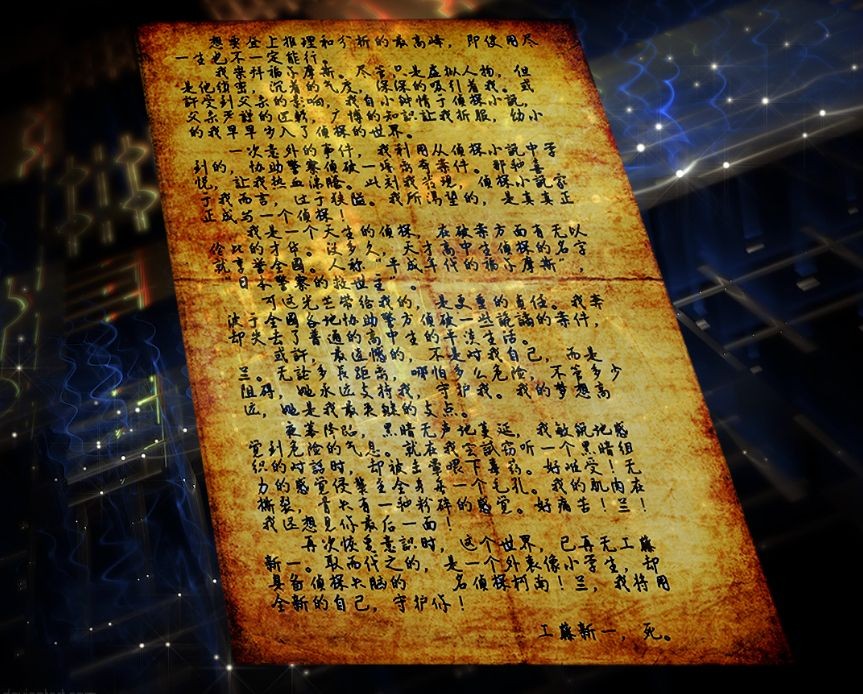 想要登上推理和分析的最高峰，即使用尽
一生也不一定能行。
我崇拜福尔摩斯。尽管只是虚拟人物，但
是他缜密、沉着的气度，深深的吸引着我。或
许受到父亲的影响，我自小钟情于侦探小说，
父亲严谨的逻辑、广博的知识让我折服，幼小
的我早早步入了侦探的世界。
一次意外的事件，我利用从侦探小说中学
到的，协助警察侦破一场离奇案件。那种喜
悦，让我热血沸腾。此刻我发现，侦探小说家
于我而言，过于狭隘。我所渴望的，是真真正
正成为一个侦探！
我是一个天生的侦探，在破案方面有无以
伦比的才华。没多久，天才高中生侦探的名字
就享誉全国。人称“平成年代的福尔摩斯”，
日本警察的救世主
可这光芒带给我的，是更重的责任。我奔
波于全国各地协助警方侦破一些诡谲的案件，
却失去了普通的高中生的平淡生活。
或许，最遗憾的，不是对我自己，而是
兰。无论多长距离，哪怕多么危险，不管多少
阻碍，她永远支持我，守护我。我的梦想高
远，她是我最柔韧的支点。
夜幕降临，黑暗无声地蔓延，我敏锐地感
觉到危险的气息。就在我尝试窃听一个黑暗组
织的对话时，却被击晕喂下毒药。好难受！无
力的感觉侵袭至全身每一个毛孔。我的肌肉在
撕裂，骨头有一种粉碎的感觉。好痛苦！兰！
我还想见你最后一面！
再次恢复意识时，这个世界，已再无工藤
新一。取而代之的，是一个外表像小学生，却
具备侦探头脑的 名侦探柯南！兰，我将用
全新的自己，守护你！
工藤新一，死。